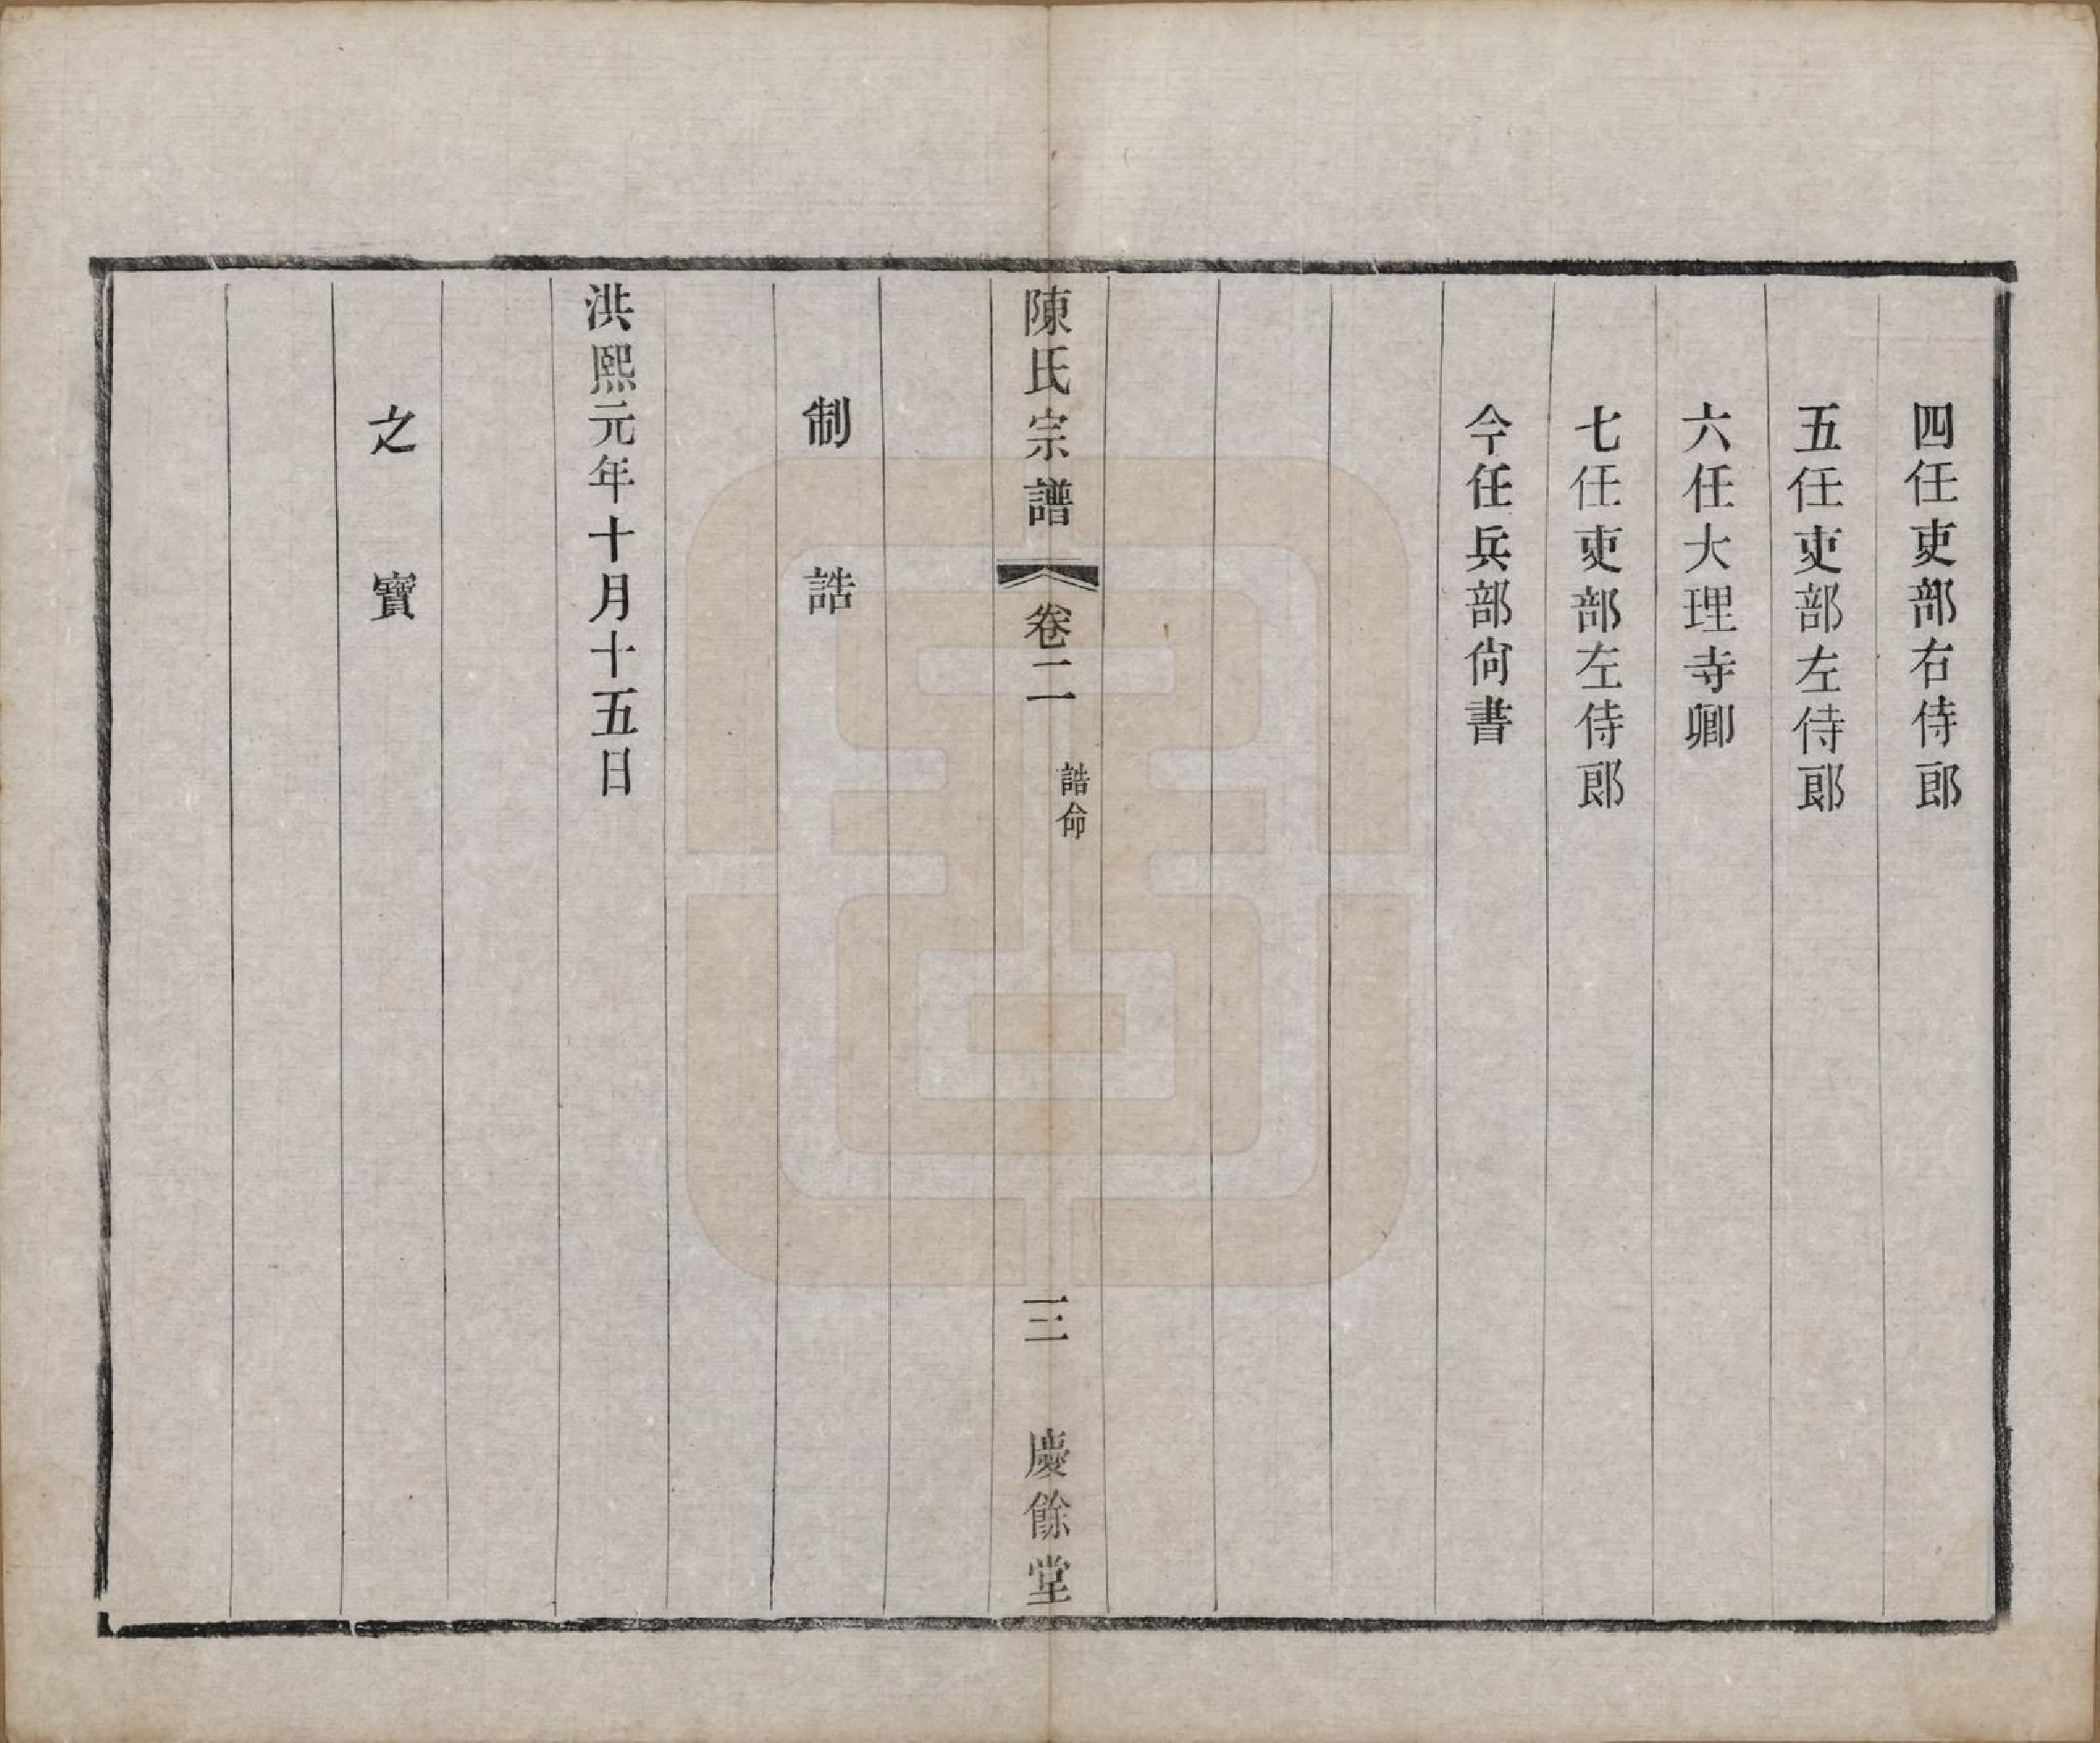 四任吏部右侍郎
五任吏部左侍郎
六任大理寺卿
七任吏部左侍郎
今任兵部尙書
陳氏宗譜
卷二
誥命
三
慶餘堂
制誥
洪熙元年十月十五日
之寶